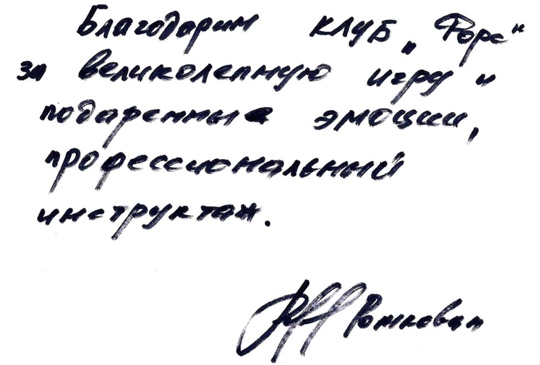 Благодарим клуб „Форс“
за великолепную игру и
подаренные эмоции,
профессиональный
инструктаж.